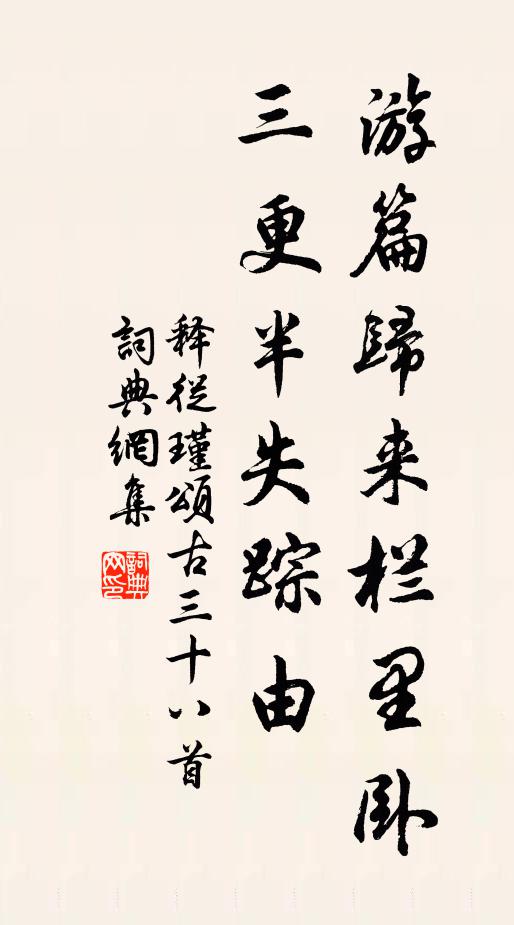 游篇歸来栏里卧
三更半失踪由
释從瑾頌古三十八首
詞典網集
詞典網印